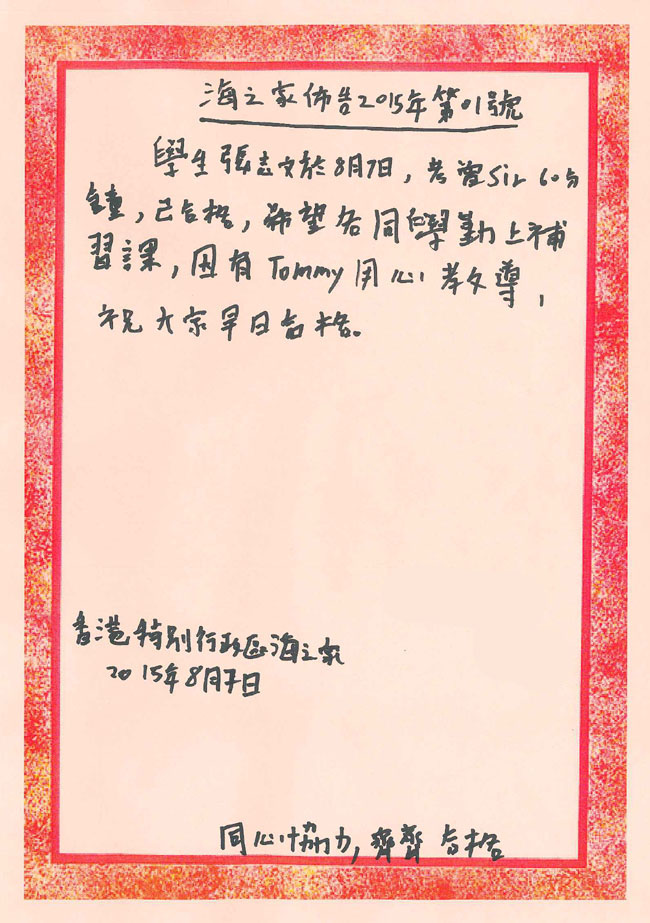 海之家佈告2015年第01號
學生張志文於8月7日,考曾Sir 60分
鐘,已合格,希望各同學勤上補
習課,因有Tommy用心教導,
祝大家早日合格。
香港特別行政區海之家
2015年8月7日
同心協力,齊齊合格